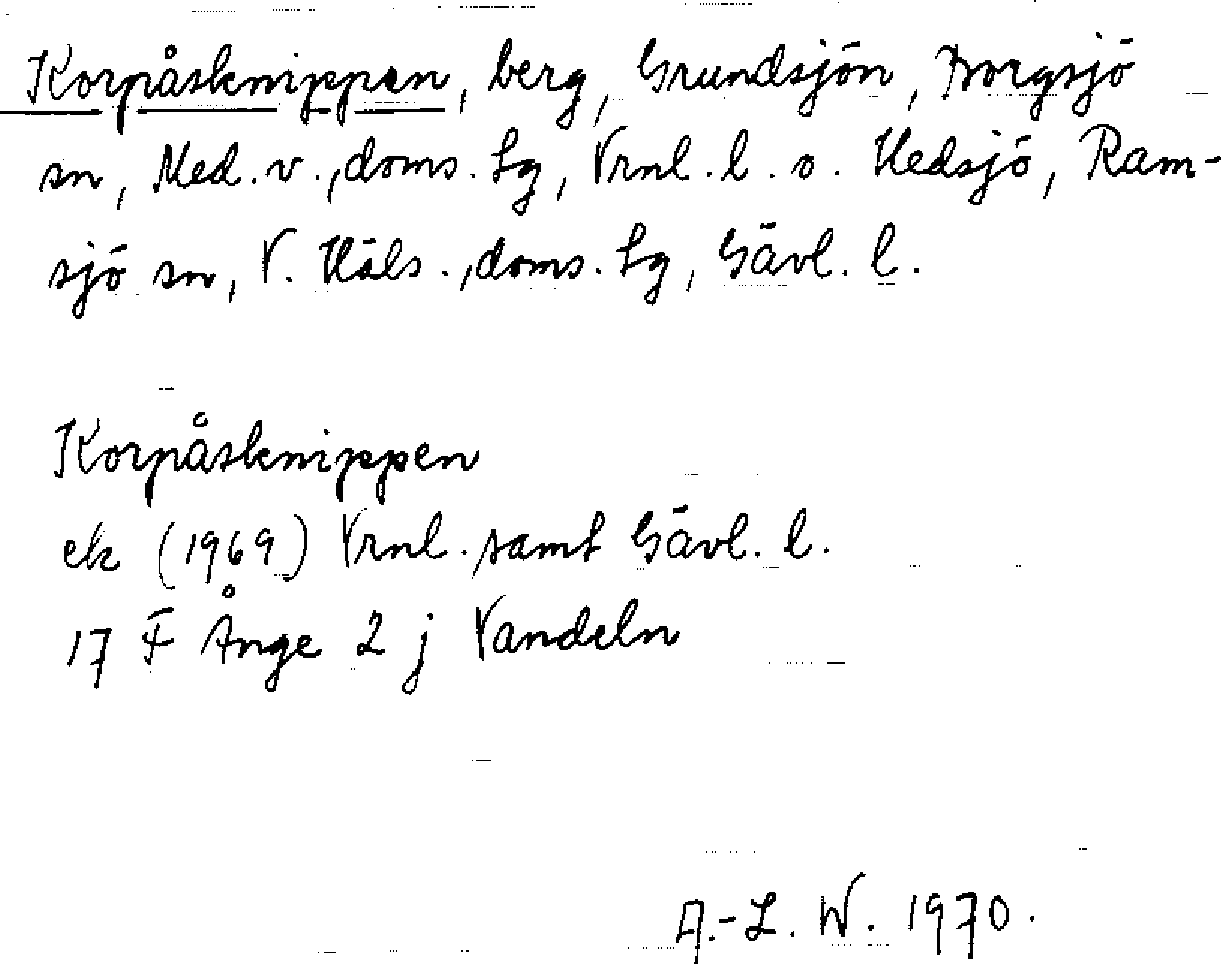 Korpåsknippen, berg, Grundsjön, Borgsjö
sn, Med. v., doms. lg, Vrnl. l. o. Hedsjö, Ram-
sjö sn, V. Häls., doms. lg, Gävl. l.
Korpåsknippen
ek (1969) Vrnl. samt Gävl. l.
17 F Ånge 2 j Vandeln
A.-L. W. 1970.